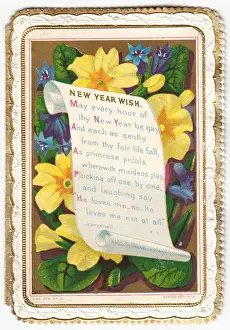 NEW YEAR WISH.
May every hour of
thy New Year be gay,
And each as gently
from thy fair life fall,
As primrose petals,
wherewith maidens play,
Plucking off one by one,
and laughing say
He loves me, no, he
loves me not at all.
(COPYRIGHT)